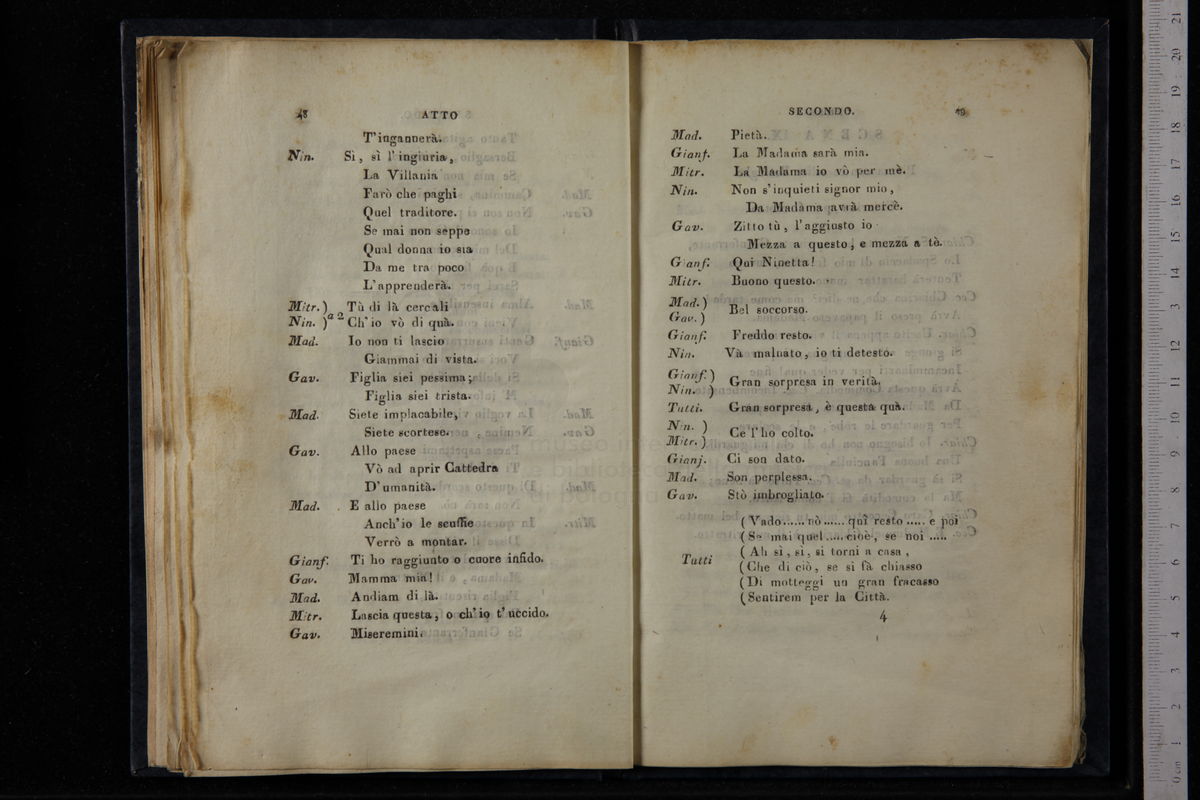 48
ATTO
T'ingannerà.
Nin. Sì, sì l'ingiuria,
La Villania
Farò che paghi
Quel traditore.
Se mai non seppe
Qual donna io sia
Da me tra poco
L'apprenderà.
Mitr. ) Tù di là cercali
Nin. ) a 2 Ch'io vò di quà.
Mad. Io non ti lascio
Giammai di vista.
Gav. Figlia siei pessima;
Figlia siei trista.
Mad. Siete implacabile,
Siete scortese.
Gav. Allo paese
Vò ad aprir Cattedra
D'umanità.
Mad. E allo paese
Anch'io le scuffie
Verrò a montar.
Gianf. Ti ho raggiunto o cuore infido.
Gav. Mamma mia!
Mad. Andiam di là.
Mitr. Lascia questa, o ch'io t'uccido.
Gav. Miseremini.
SECONDO.
49
Mad. Pietà.
Gianf. La Madama sarà mia.
Mitr. La Madama io vò per mè.
Nin. Non s'inquieti signor mio,
Da Madama avrà mercè.
Gav. Zitto tù, l'aggiusto io
Mezza a questo, e mezza a tè.
Gianf. Qui Ninetta!
Mitr. Buono questo.
Mad. )
Gav. ) Bel soccorso.
Gianf. Freddo resto.
Nin. Và malnato, io ti detesto.
Gianf. )
Nin. ) Gran sorpresa in verità.
Tutti. Gran sorpresa, è questa quà.
Nin. )
Mitr. ) Ce l'ho colto.
Gianf. Ci son dato.
Mad. Son perplessa.
Gav. Stò imbrogliato.
( Vado...... nò ...... quì resto ..... e poi
( Se mai quel ..... cioè, se noi .....
( Ah sì, si, si torni a casa,
Tutti
( Che di ciò, se si fà chiasso
( Di motteggi un gran fracasso
( Sentirem per la Città.
4